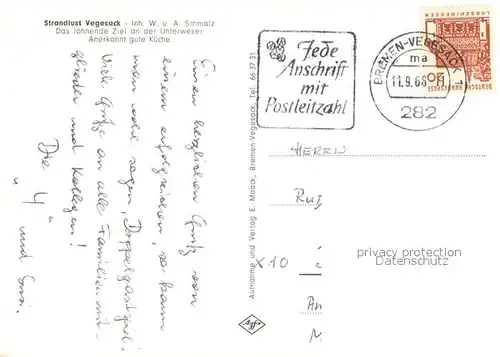 Strandlust Vegesack - Inh. W. u. A. Schmalz
Das lohnende Ziel an der Unterweser
Anerkannt gute Küche
Einen herzlichen Gruß von
einem erfolgreichen, so kann
man wohl sagen, Doppelgastspiel!
Viele Grüße an alle Familienmit-
glieder und Kollegen!
Die "4" und
Aufnahme und Verlag E. Maack, Bremen-Vegesack, Tel. 66 37 51
Agfa
Jede
Anschrift
mit
Postleitzahl
BREMEN-VEGESACK 1
ma
11.9.66-11
282
LORSCH/HESSEN
DEUTSCHE BUNDESPOST
20
HERRN
X10
An
M
privacy protection
Datenschutz